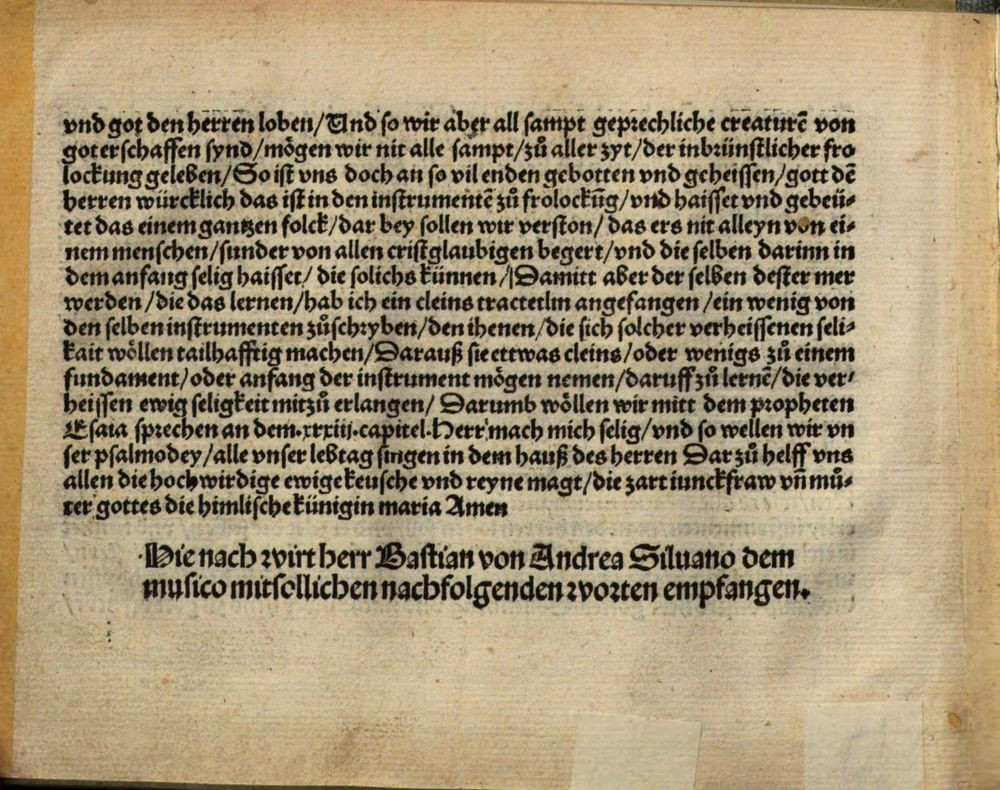 vnd got den herren loben/Und so wir aber all sampt geprechliche creaturē von
got erschaffen synd/mögen wir nit alle sampt/zů aller zyt/der inbrünstlicher fro
lockung geleben/So ist vns doch an so vil enden gebotten vnd geheissen/gott dē
herren würcklich das ist in den instrumentē zů frolockūg/vnd haisset vnd gebeü⸗
tet das einem gantzen folck/dar bey sollen wir verston/das ers nit alleyn von ei⸗
nem menschen/sunder von allen cristglaubigen begert/vnd die selben darinn in
dem anfang selig haisset/die solichs künnen/Damitt aber der selben dester mer
werden/die das lernen/hab ich ein cleins tractetlin angefangen/ein wenig von
den selben instrumenten zůschryben/den ihenen/die sich solcher verheissenen seli⸗
kait wöllen tailhafftig machen/Darauß sie ettwas cleins/oder wenigs zů einem
fundament/oder anfang der instrument mögen nemen/daruff zů lernē/die ver⸗
heissen ewig seligkeit mitzů erlangen/Darumb wöllen wir mitt dem propheten
Esaia sprechen an dem.xxxiij.capitel.Herr mach mich selig/vnd so wellen wir vn
ser psalmodey/alle vnser lebtag singen in dem hauß des herren Dar zů helff vns
allen die hochwirdige ewige keusche vnd reyne magt/die zart iunckfraw vñ mů⸗
ter gottes die himlische künigin maria Amen
Hie nach wirt herr Bastian von Andrea Siluano dem
musico mit sollichen nachfolgenden worten empfangen.